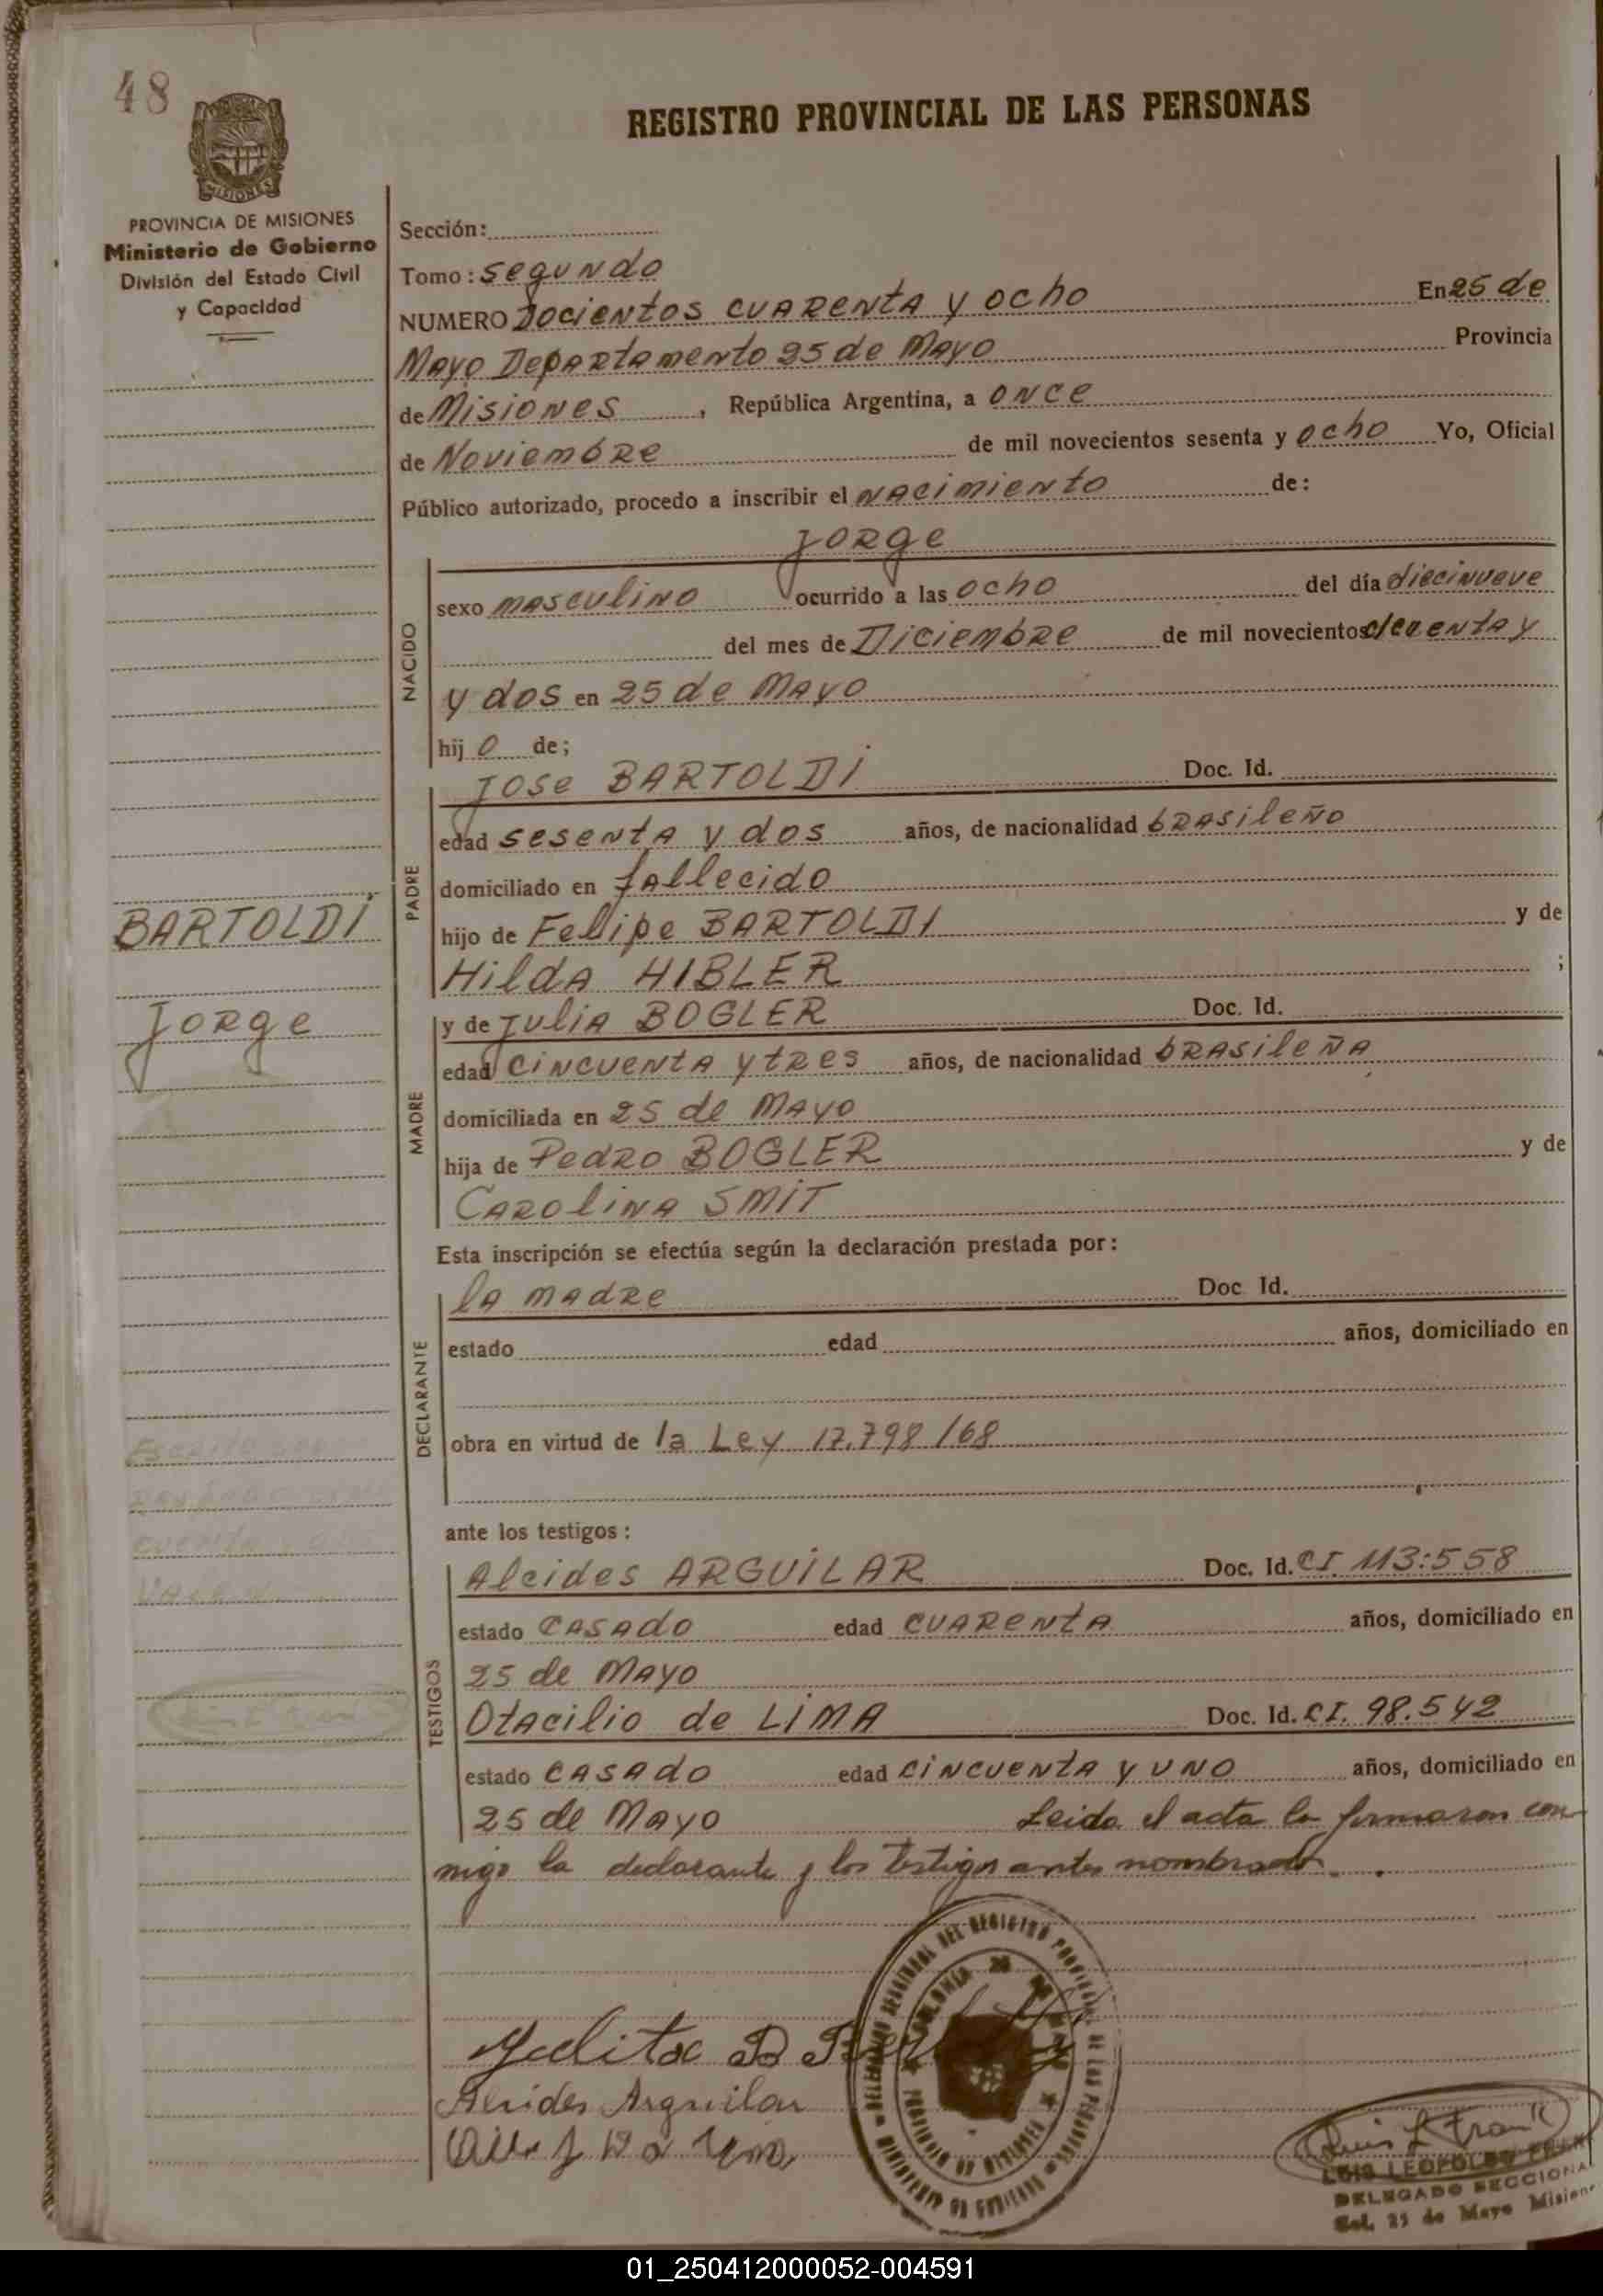 48
REGISTRO PROVINCIAL DE LAS PERSONAS
MISIONES
PROVINCIA DE MISIONES
Ministerio de Gobierno
División del Estado Civil
y Capacidad
Sección:
Tomo: segundo
NUMERO Docientos cuarenta y ocho En 25 de
Mayo Departamento 25 de Mayo Provincia
de Misiones, República Argentina, a once
de Noviembre de mil novecientos sesenta y ocho Yo, Oficial
Público autorizado, procedo a inscribir el nacimiento de:
Jorge
NACIDO
sexo masculino ocurrido a las ocho del día diecinueve
del mes de Diciembre de mil novecientos y
y dos en 25 de Mayo
hij o de;
PADRE
Jose BARTOLDI Doc. Id.
edad sesenta y dos años, de nacionalidad brasileño
domiciliado en fallecido
hijo de Felipe BARTOLDI y de
Hilda HIBLER ;
BARTOLDI
Jorge
MADRE
y de Julia BOGLER Doc. Id.
edad cincuenta y tres años, de nacionalidad brasileña
domiciliada en 25 de Mayo
hija de Pedro BOGLER y de
Carolina SMIT
Esta inscripción se efectúa según la declaración prestada por:
DECLARANTE
la madre Doc Id.
estado edad años, domiciliado en
obra en virtud de la Ley 17.798/68
ante los testigos:
TESTIGOS
Alcides ARGUILAR Doc. Id. CI 113:558
estado casado edad cuarenta años, domiciliado en
25 de Mayo
Otacilio de LIMA Doc. Id. CI. 98.542
estado casado edad cincuenta y uno años, domiciliado en
25 de Mayo Leida el acta la firmaron con
migo la declarante y los testigos antes nombrados.
Alcides Arguilar
Luis L Frank
LUIS LEOPOLDO FRANK
DELEGADO SECCIONAL
Col. 25 de Mayo Misiones
01_250412000052-004591